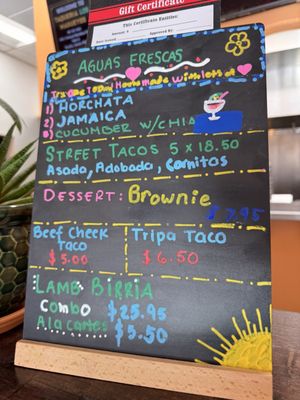 Gift Certificate
This Certificate Entitles
AGUAS FRESCAS
Try one Today! Homemade with lots of
1) HORCHATA
2) JAMAICA
3) CUCUMBER W/CHIA
STREET TACOS 5 x 18.50
Asada, Adobada, Carnitas
DESSERT: Brownie
$7.95
Beef Cheek
Taco
$5.00
Tripa Taco
$6.50
LAMB BIRRIA
Combo $25.95
Ala carte $5.50